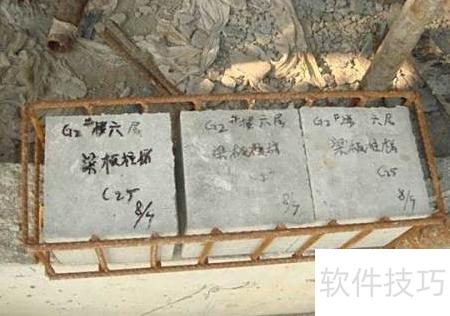 G2#楼六层
梁板柱墙
C25
8/7
G2#楼六层
梁板柱墙
8/7
G2#楼六层
梁板柱墙
C25
8/7
软件技巧